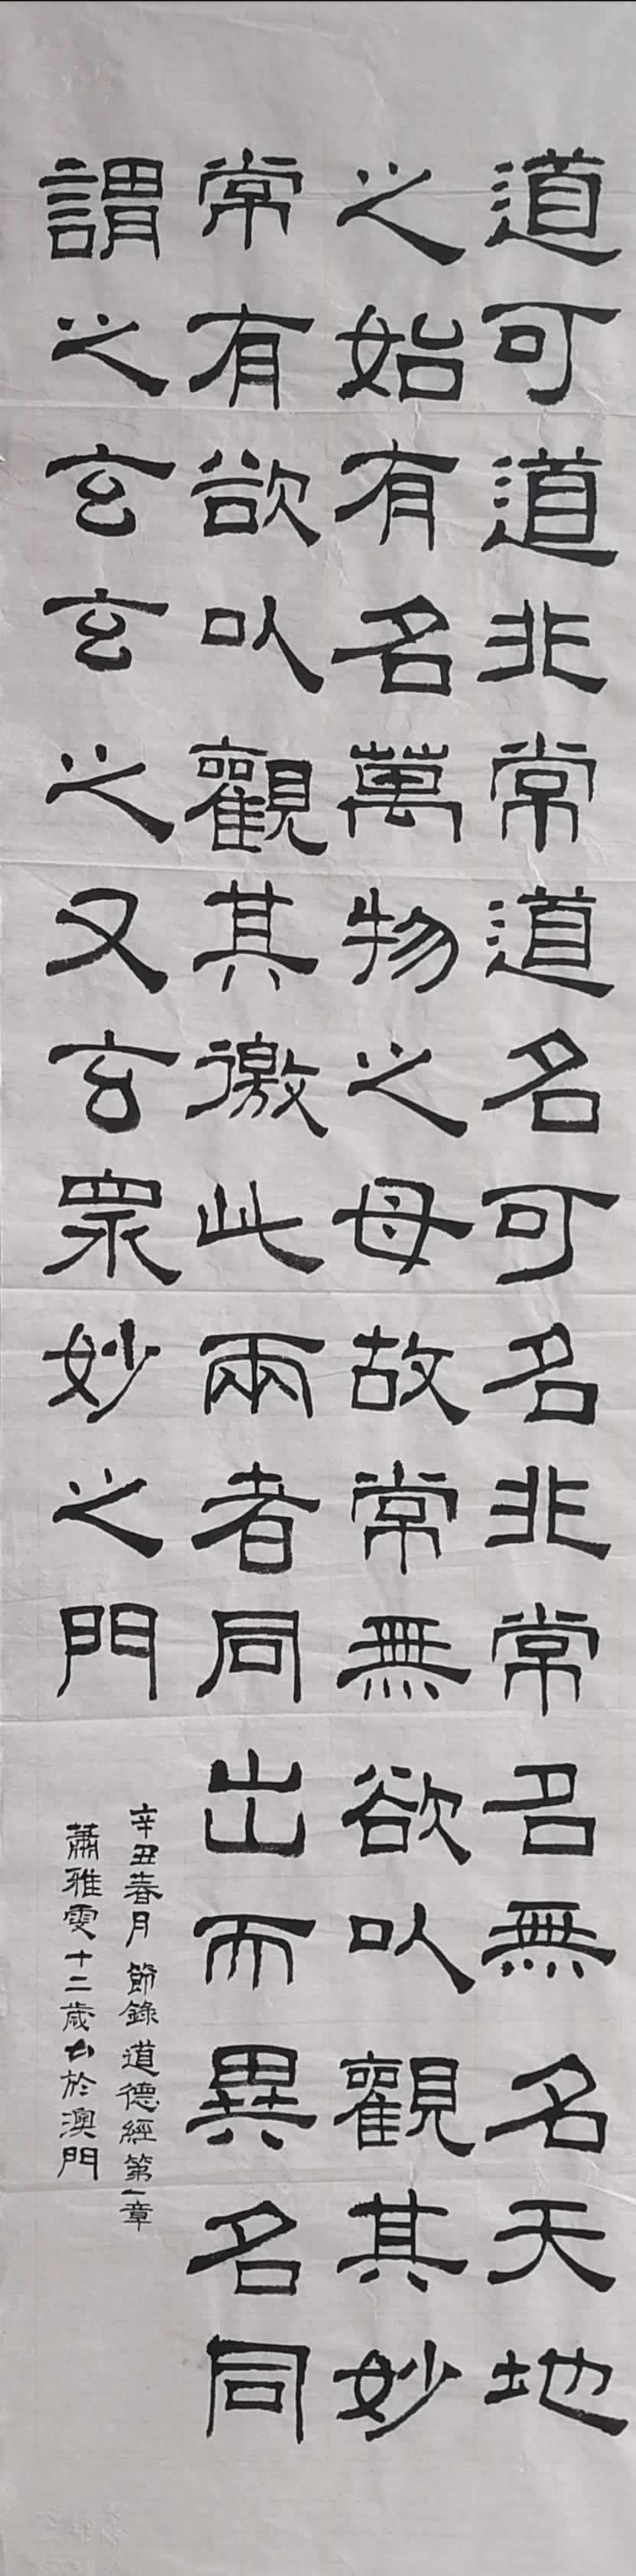 道可道非常道名可名非常名無名天地
之始有名萬物之母故常無欲以觀其妙
常有欲以觀其徼此兩者同出而異名同
謂之玄玄之又玄眾妙之門
辛丑春月節錄道德經第一章
蕭雅雯十二歲書於澳門